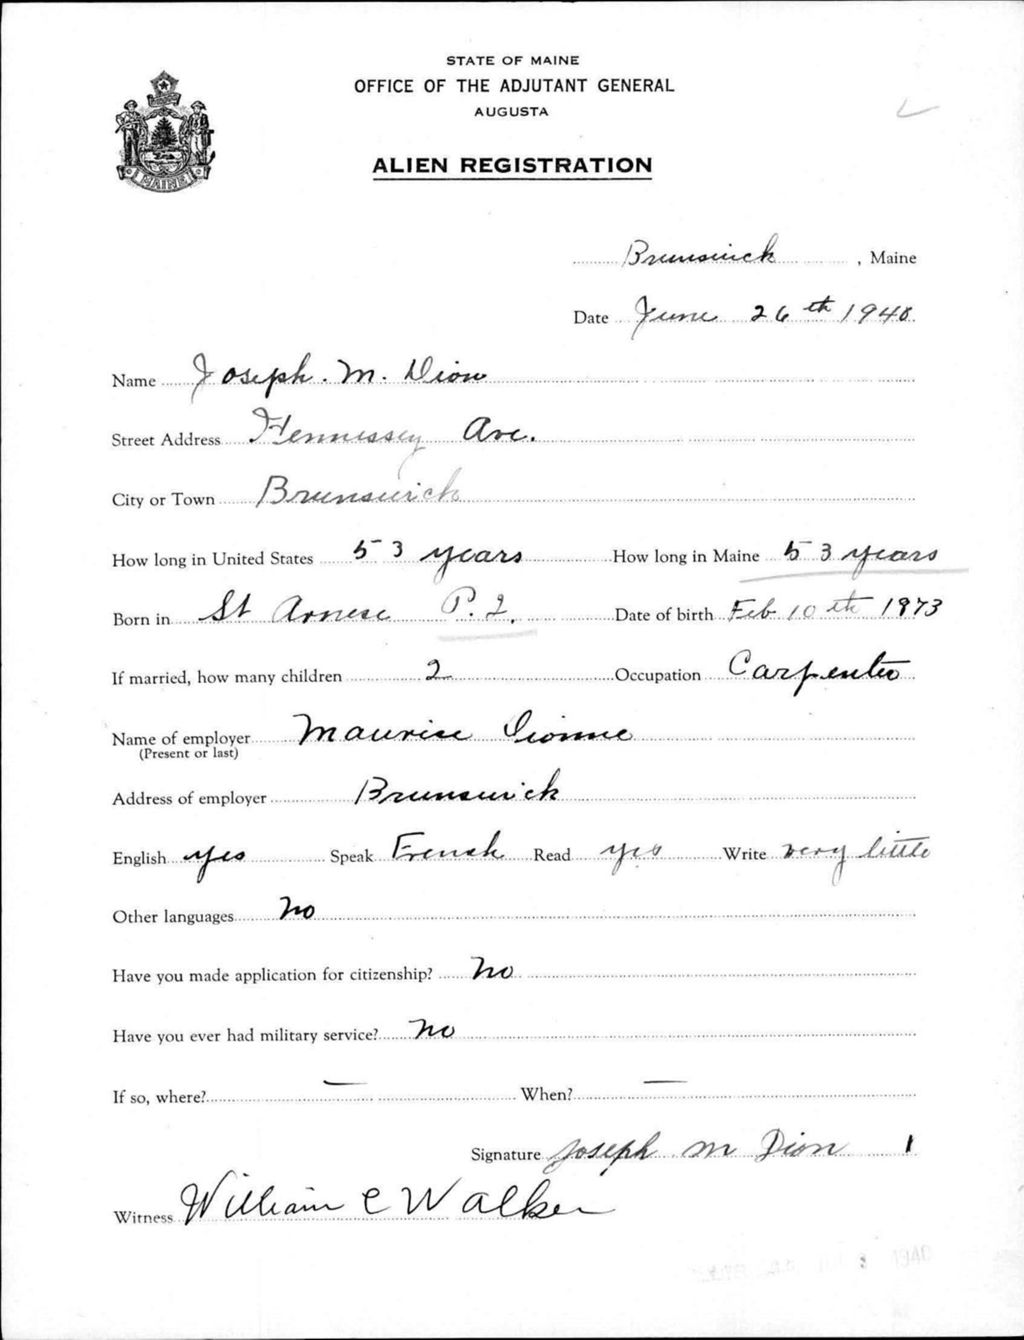 STATE OF MAINE
OFFICE OF THE ADJUTANT GENERAL
AUGUSTA
MAINE
ALIEN REGISTRATION
Brunswick, Maine
Date June 26th 1940
Name Joseph. M. Dion
Street Address Hennessey Ave.
City or Town Brunswick
How long in United States 53 years How long in Maine 53 years
Born in St P. Q. Date of birth Feb 10th 1873
If married, how many children 2 Occupation Carpenter
Name of employer Maurise Dionne
(Present or last)
Address of employer Brunswick
English yes Speak French Read yes Write very little
Other languages no
Have you made application for citizenship? no
Have you ever had military service? no
If so, where? — When? —
Signature Joseph M Dion
Witness William C Walker
1940